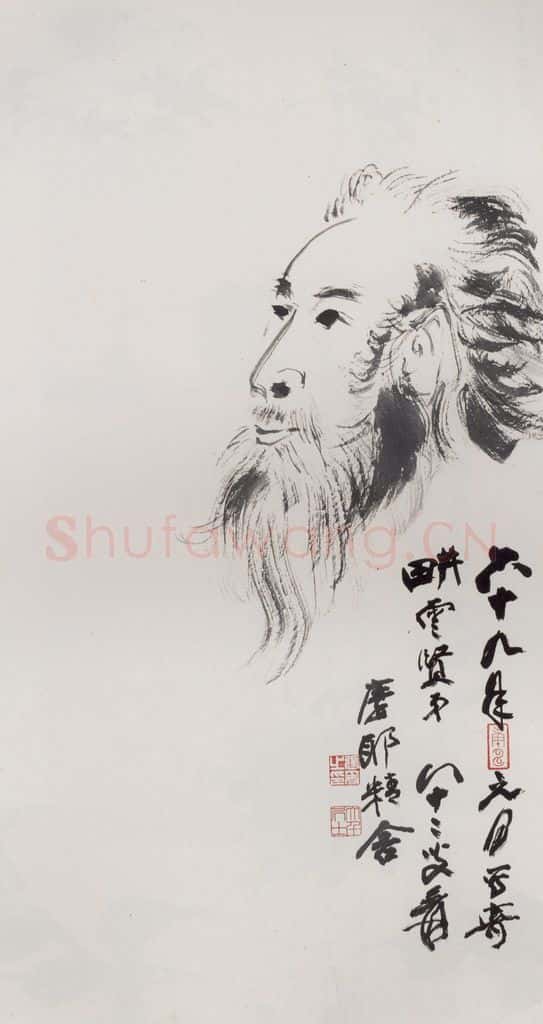 六十九年元月写寄
畊雲賢弟 八十二叟爰
摩耶精舍
Shufawang.CN